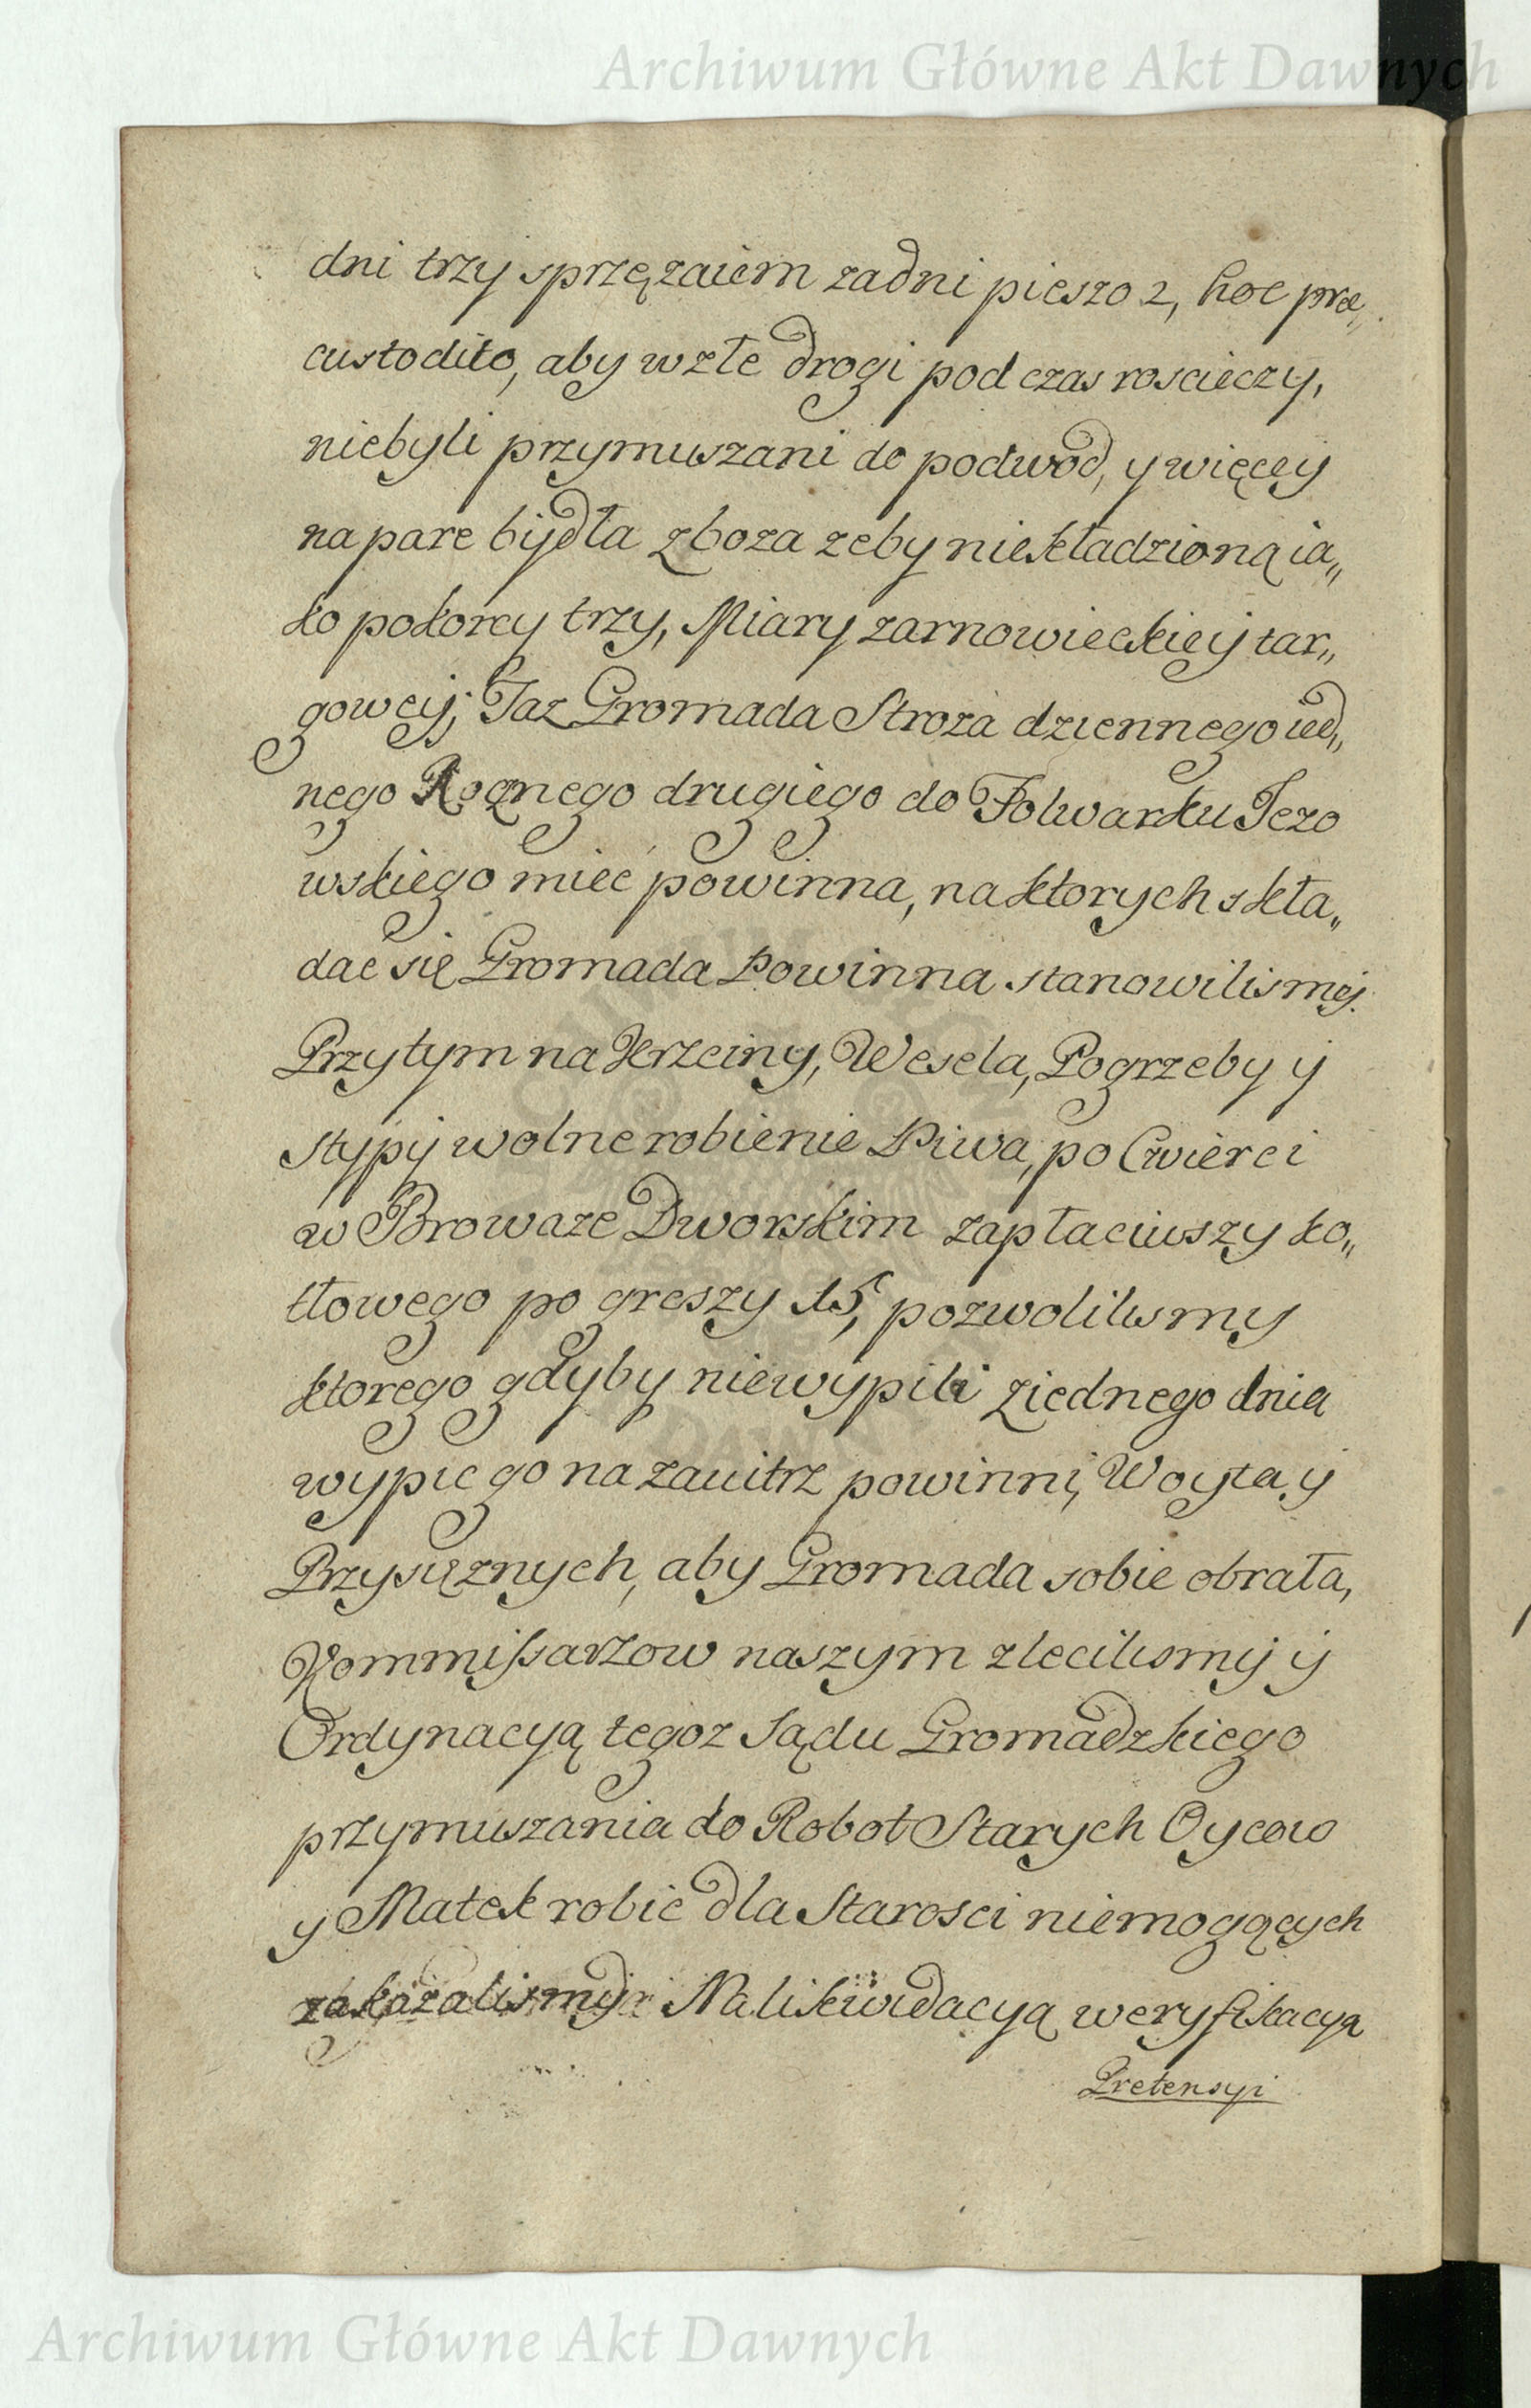 Archiwum Główne Akt Dawnych
dni trzy sprzężaiem za dni pieszo 2, hoc præ„
custodito, aby w złe drogi pod czas rościeczy,
niebyli przymuszani do podwod, y więcey
na pare bydła zboza zeby niekładzioną ia„
ko pokorcy trzy, Miary zarnowieckieÿ tar„
gowey; Taz Gromada Stroza dziennego ied„
nego Rognego drugiego do Folwarku Jezo
wskiego mieć powinna, na ktorych skła„
dac się Gromada Powinna stanowilismy.
Przytym na Krzciny, Wesela, Pogrzeby y
stypÿ wolne robienie Piwa, po Cwierci
w Browaze Dworskim zapłaciwszy ko„
tłowego po groszy 15, pozwolilismy
ktorego gdyby niewypili z iednego dnia
wypic go nazauitrz powinni, Woyta y
Przysięznych, aby Gromada sobie obrała,
Kommissarzow naszym zlecilismÿ ÿ
Ordynacyą tegoz Sądu Gromadzkiego
przymuszania do Robot Starych Oycow
y Matek robic dla Starosci niemogących
zakazalismy Na likwidacyą weryfikacyą
Pretensyi
Archiwum Główne Akt Dawnych